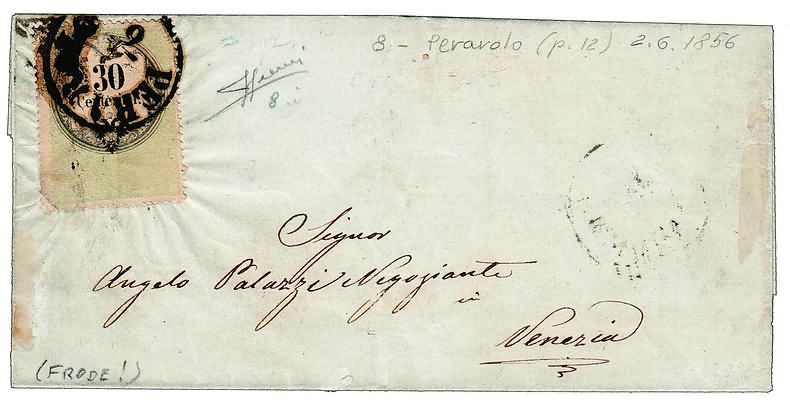 8. - Peravolo (p. 12) 2.6.1856
30
Centes.
8
Signor
Angelo Palazzi Negoziante
in
Venezia
(FRODE!)